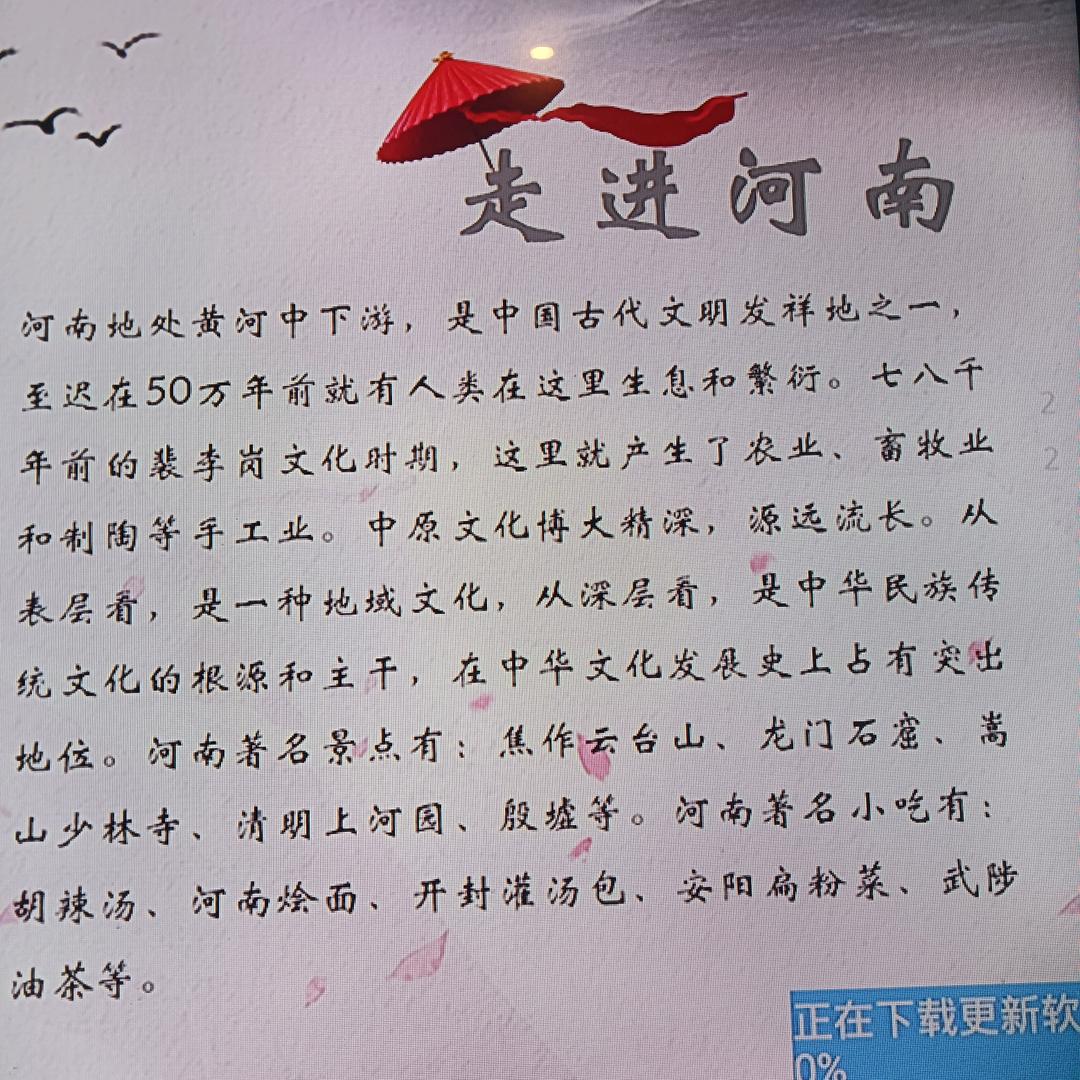 走进河南
河南地处黄河中下游，是中国古代文明发祥地之一，
至迟在50万年前就有人类在这里生息和繁衍。七八千
年前的裴李岗文化时期，这里就产生了农业、畜牧业
和制陶等手工业。中原文化博大精深，源远流长。从
表层看，是一种地域文化，从深层看，是中华民族传
统文化的根源和主干，在中华文化发展史上占有突出
地位。河南著名景点有：焦作云台山、龙门石窟、嵩
山少林寺、清明上河园、殷墟等。河南著名小吃有：
胡辣汤、河南烩面、开封灌汤包、安阳扁粉菜、武陟
油茶等。
2
2
正在下载更新软
0%